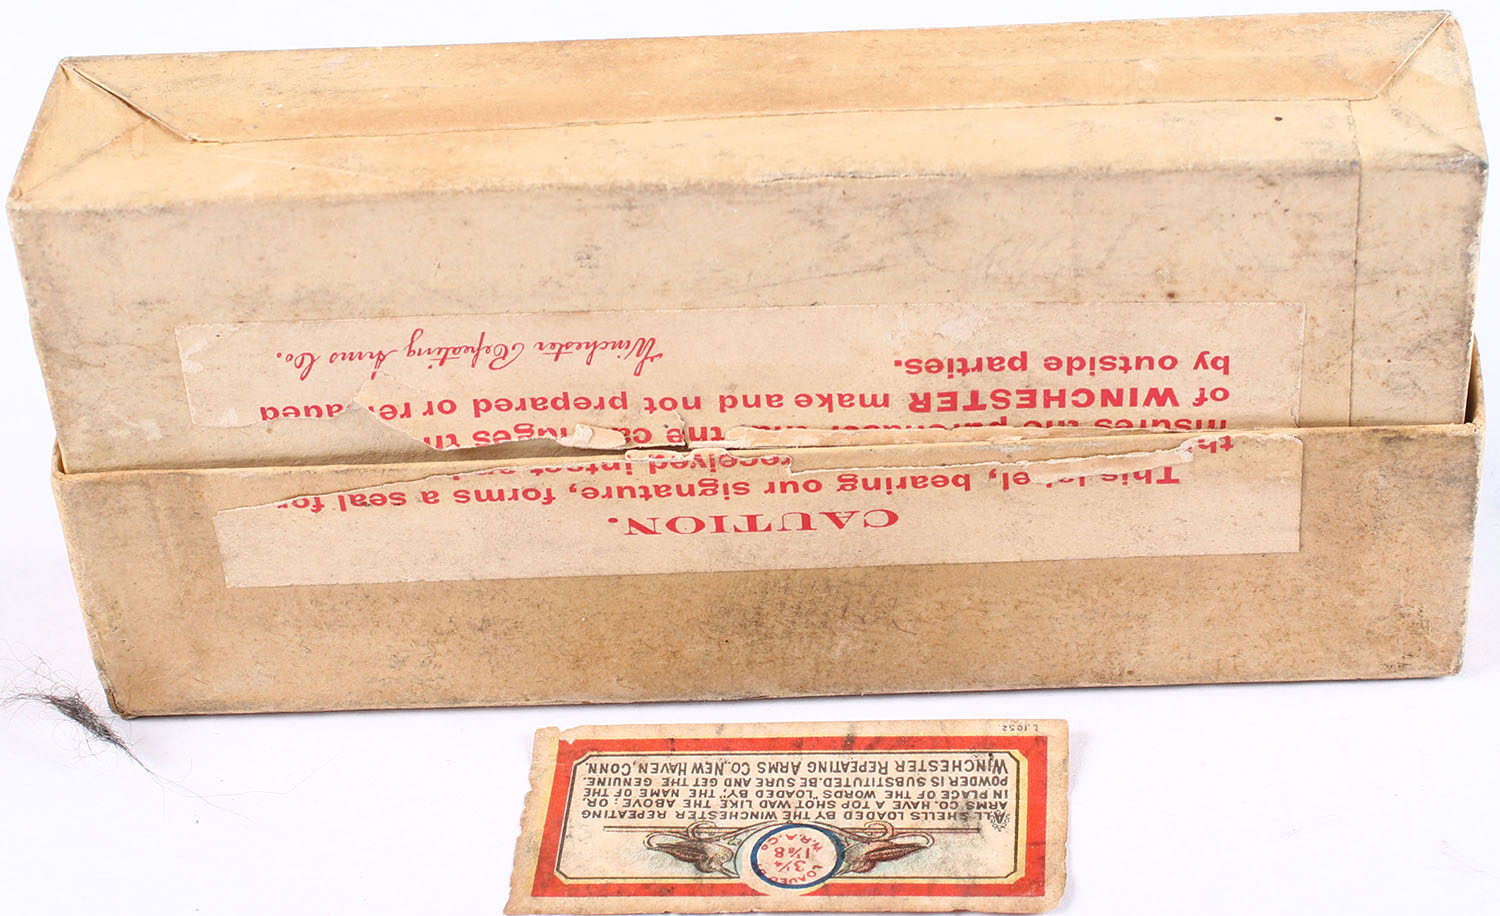 CAUTION.
This label, bearing our signature, forms a seal for
received intact
insures the purchaser the
of WINCHESTER make and not prepared or reloaded
by outside parties.
Winchester Repeating Arms Co.
LOADED
3¼
1⅛ 8
W.R.A.Co.
ALL SHELLS LOADED BY THE WINCHESTER REPEATING
ARMS CO. HAVE A TOP SHOT WAD LIKE THE ABOVE; OR,
IN PLACE OF THE WORDS "LOADED BY," THE NAME OF THE
POWDER IS SUBSTITUTED. BE SURE AND GET THE GENUINE.
WINCHESTER REPEATING ARMS CO. NEW HAVEN, CONN.
L.1052